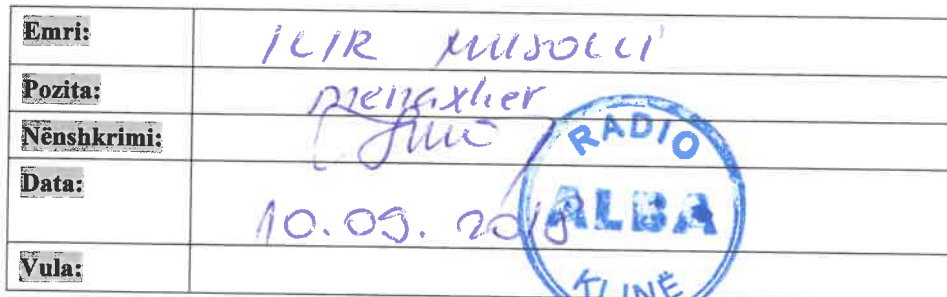 Emri: ILIR MUSOLLI
Pozita: menaxher
Nënshkrimi:
Data: 10.09.
Vula:
RADIO
ALBA
KLINË